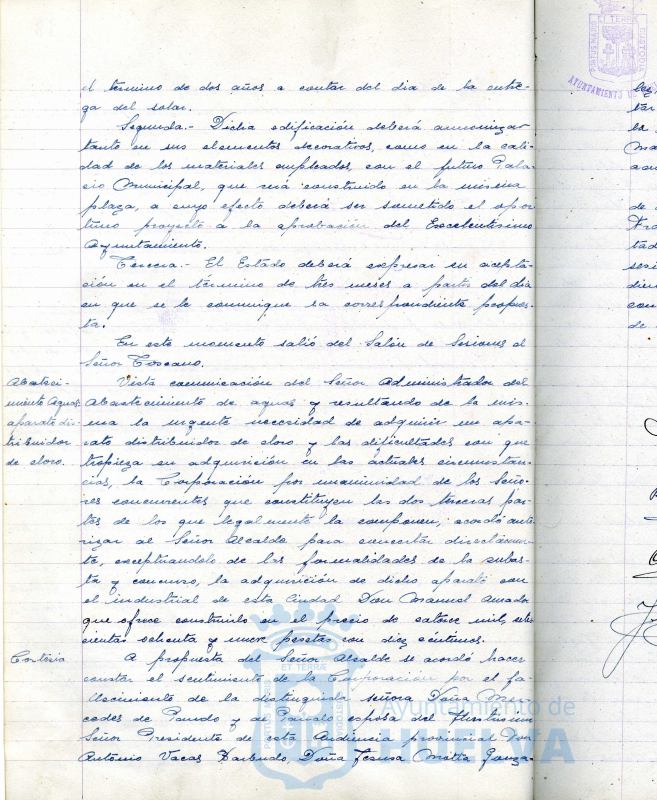 el término de dos años a contar del dia de la entre-
ga del solar.
Segunda.- Dicha edificación deberá armonizar
tanto en sus elementos decorativos, como en la cali-
dad de los materiales empleados, con el futuro Pala-
cio Municipal, que será construido en la misma
plaza, a cuyo efecto deberá ser sometido el opor-
tuno proyecto a la aprobación del Excelentísimo
Ayuntamiento.
Tercera.- El Estado deberá expresar su acepta-
ción en el término de tres meses a partir del dia
en que se le comunique la correspondiente propues-
ta.
En este momento salió del Salón de Sesiones el
Señor Toscano.
Abasteci-
miento Aguas
aparato dis-
tribuidor
de cloro.
Vista comunicación del Señor Administrador del
Abastecimiento de aguas y resultando de la mis-
ma la urgente necesidad de adquirir un apa-
rato distribuidor de cloro y las dificultades con que
tropieza su adquisición en las actuales circunstan-
cias, la Corporación por unanimidad de los Seño-
res concurrentes que constituyen las dos terceras par-
tes de los que legalmente la componen, acordó auto-
rizar al Señor Alcalde para concertar directamen-
te, exceptuandolo de las formalidades de la subas-
ta y concurso, la adquisición de dicho aparato con
el industrial de esta Ciudad Don Manuel Amador
que ofrece construirlo en el precio de catorce mil, seis-
cientas ochenta y nueve pesetas con diez céntimos.
Cortesia
A propuesta del Señor Alcalde se acordó hacer
constar el sentimiento de la Corporación por el fa-
llecimiento de la distinguida señora Doña Mer-
cedes de Pando y de Pando esposa del Ilustrísimo
Señor Presidente de esta Audiencia provincial Don
Antonio Vacas Doña Jesusa Motta Gonza-
ET TERRA
AYUNTAMIENTO DE
ET TERRA
Ayuntamiento de
HUELVA